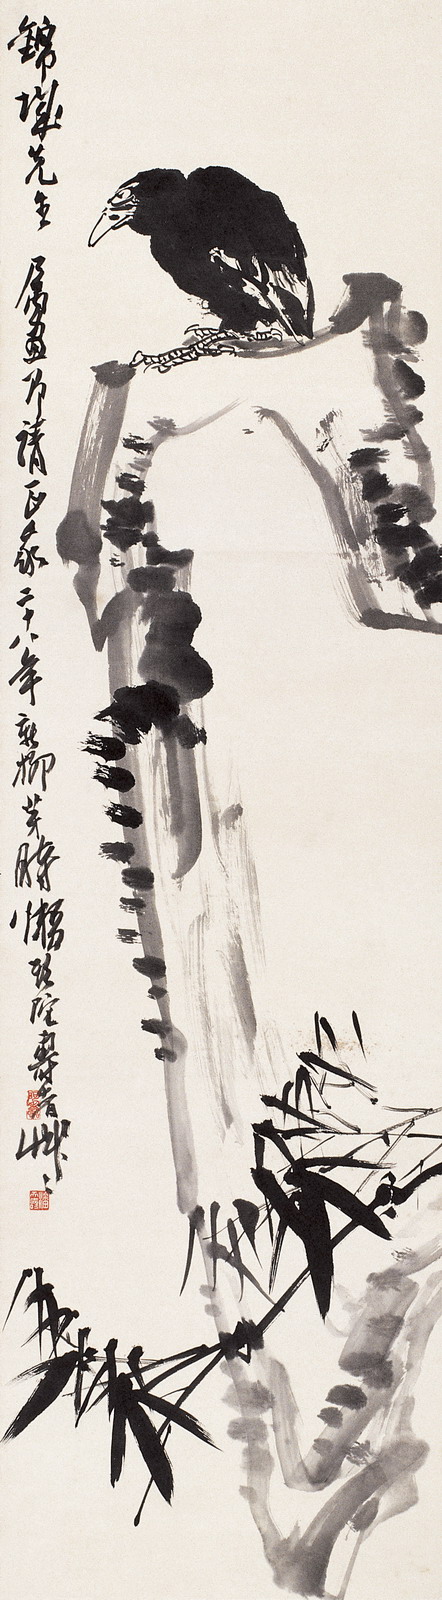 錦城先生屬畫即請正二十八年新柳芽時懶頭陀壽者艸艸